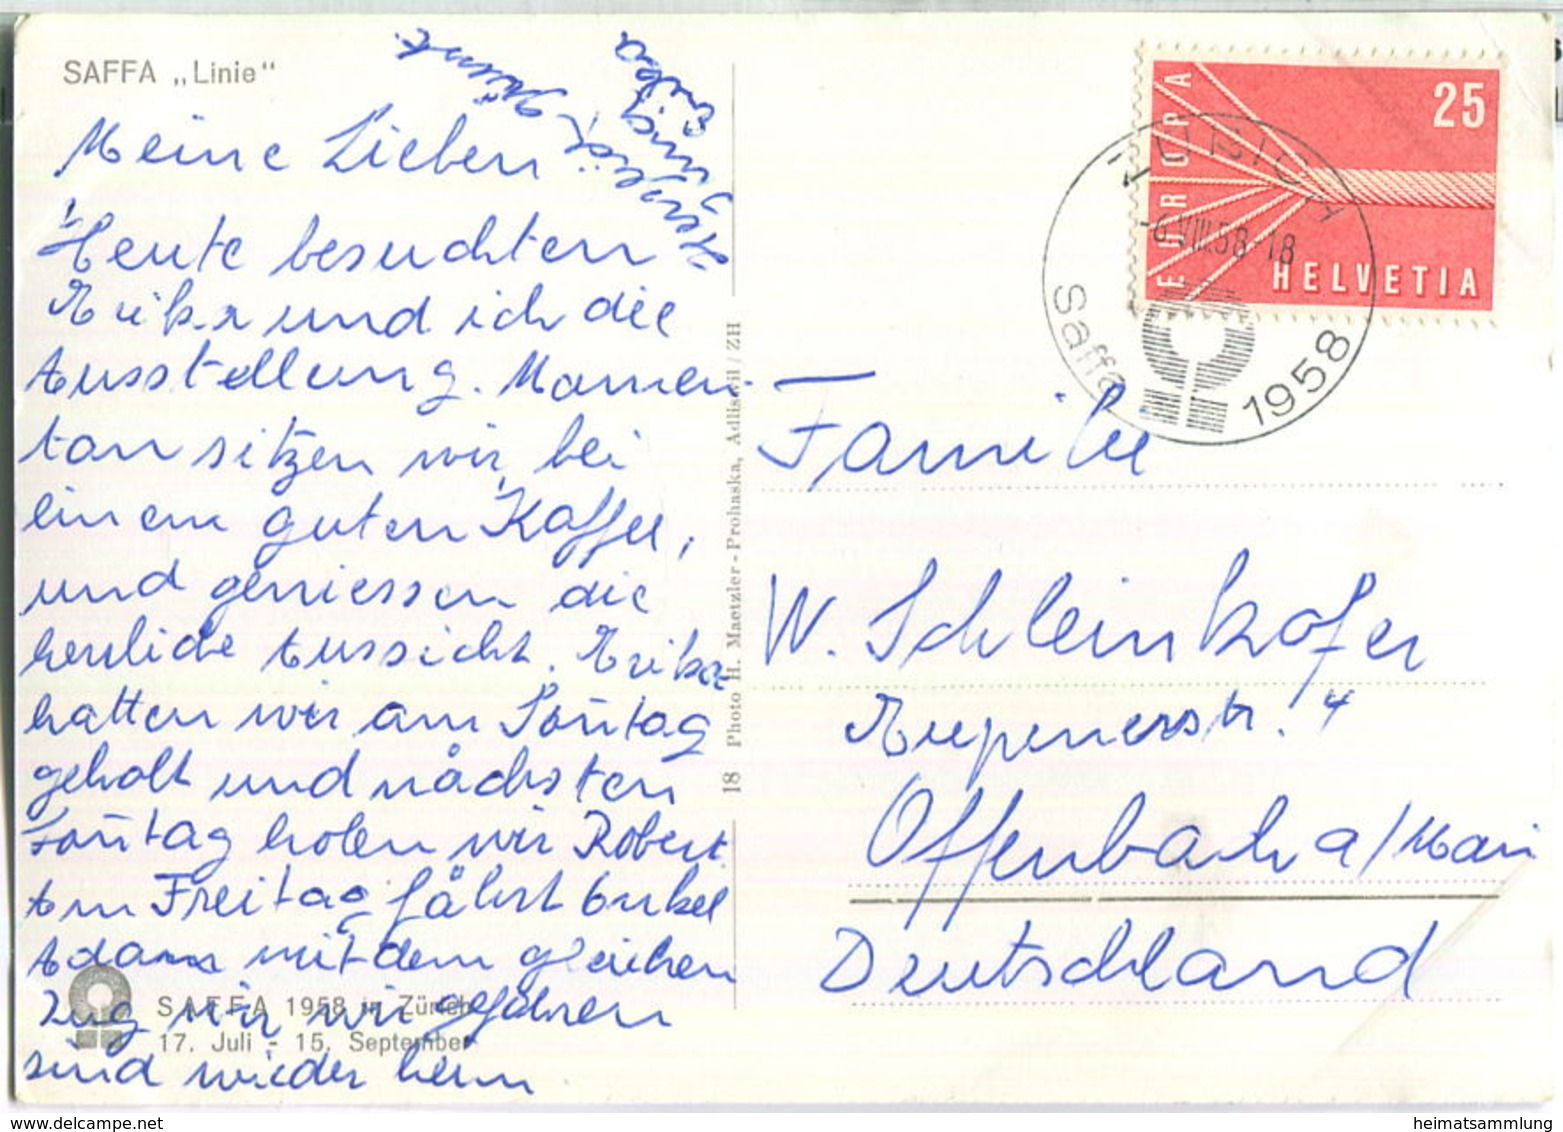 SAFFA „Linie"
Meine Lieben
Heute besuchten
Erika und ich die
Ausstellung. Momen-
tan sitzen wir bei
einem guten Kaffee,
und geniessen die
herrliche Aussicht. Erika
hatten wir am Sontag
geholt und nächsten
Sontag holen wir Robert
Am Freitag fährt Onkel
Adam mit dem gleichen
Zug wir wir gefahren
sind wieder heim
Herzlich
Erika
SAFFA 1958 in Zürich
17. Juli - 15. September
18 Photo H. Maetzler-Prohaska, Adliswil / ZH
EUROPA
25
HELVETIA
ZÜRICH
-6.VIII.58-18
Saffa 1958
Familie
W. Schleinkofer
4
Offenbach a/Main
Deutschland
www.delcampe.net
heimatsammlung